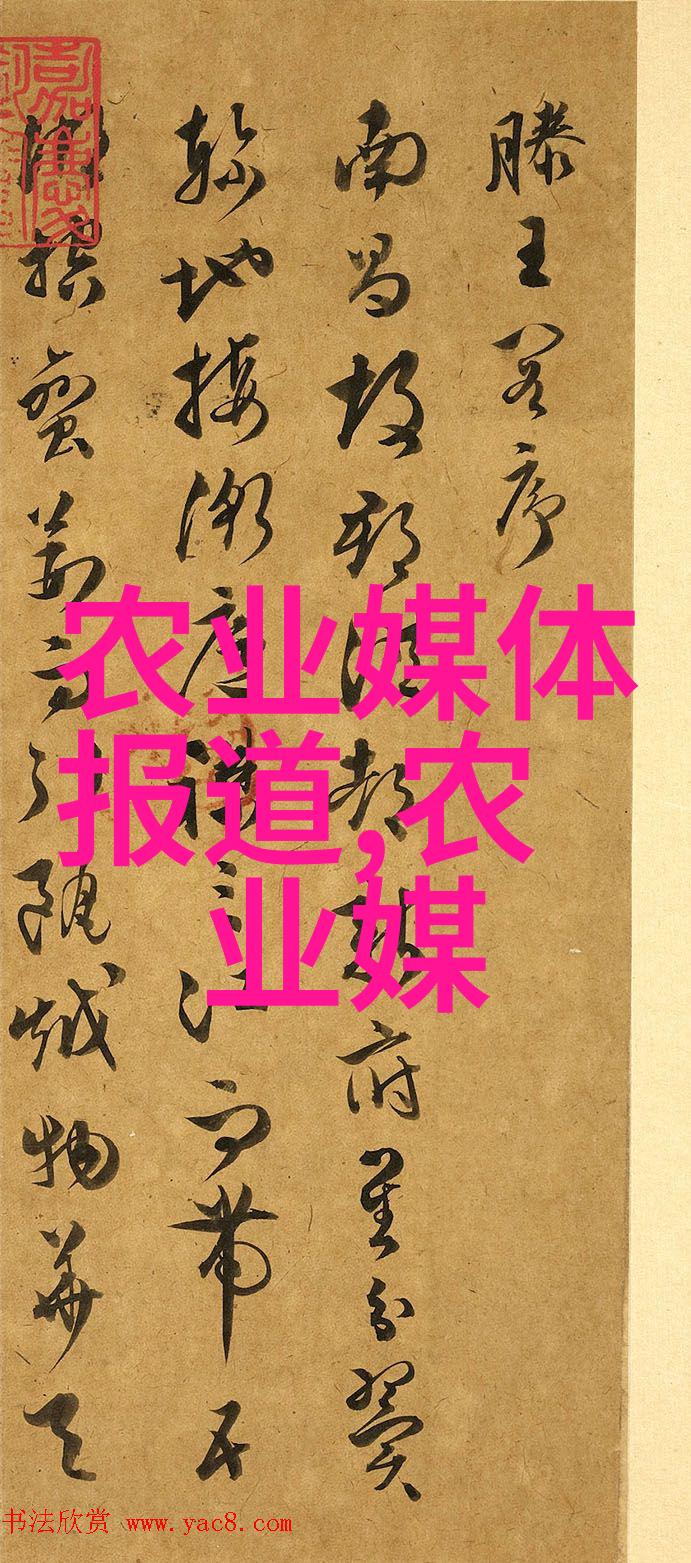 滕王閣序
南昌故郡洪都新府星分翼
軫地接衡廬襟三江而帶五
湖控蠻荊而引甌越物華天
农业媒体
报道,农
业媒
书法欣赏 www.yac8.com